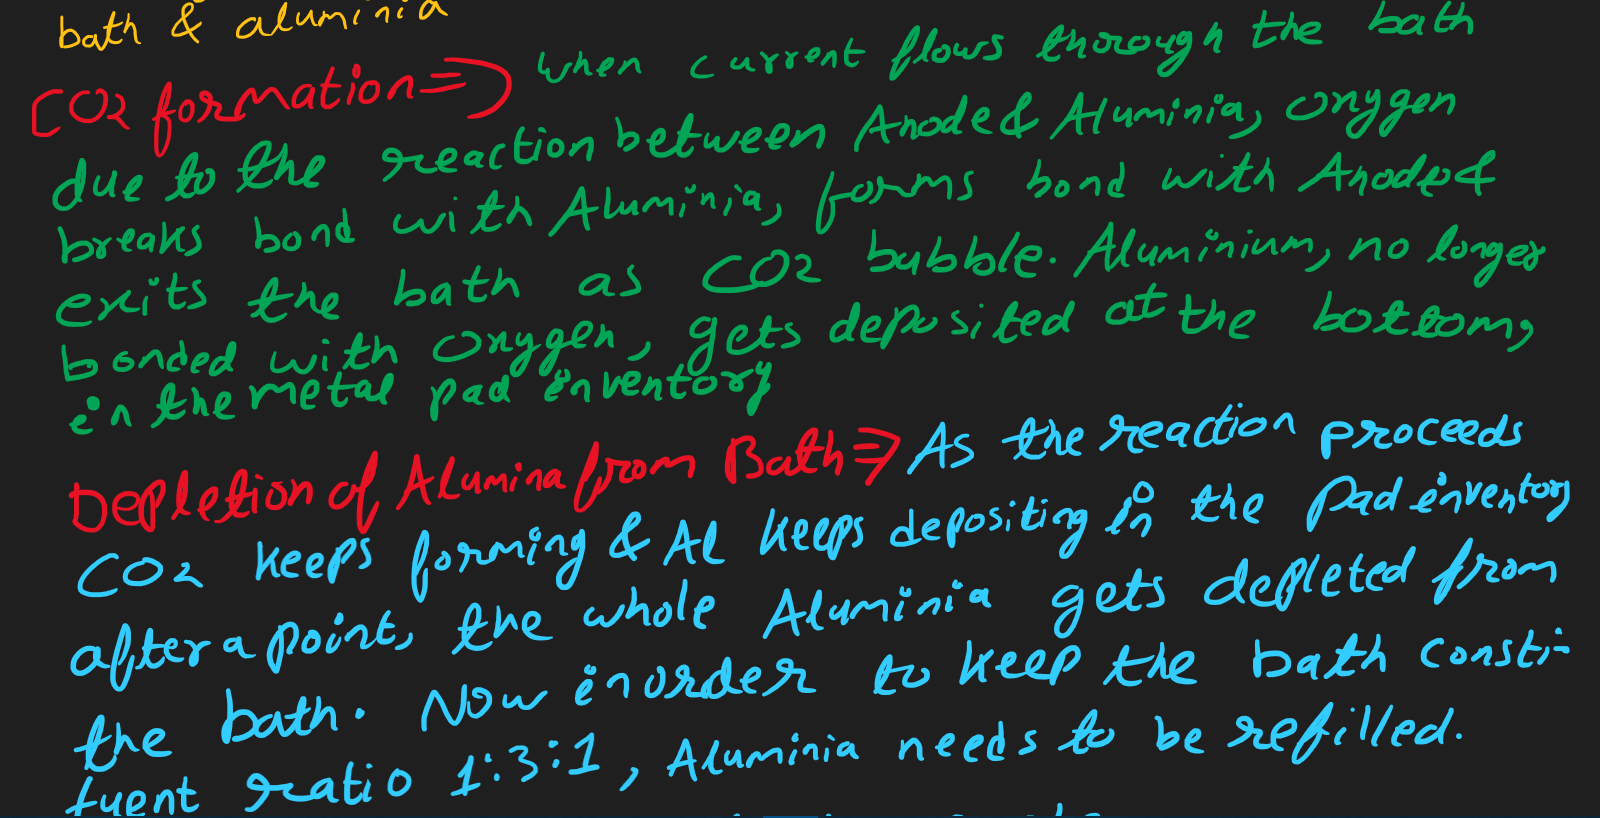 bath & aluminia
CO2 formation => when current flows thorough the bath
due to the reaction between Anode & Aluminia, oxygen
breaks bond with Aluminia, forms bond with Anode &
exits the bath as CO2 bubble. Aluminium, no longer
bonded with oxygen, gets deposited at the bottom,
in the metal pad inventory
Depletion of Alumina from Bath => As the reaction proceeds
CO2 keeps forming & Al keeps depositing in the pad inventory
after a point, the whole Aluminia gets depleted from
the bath. Now inorder to keep the bath consti-
tuent ratio 1:3:1, Aluminia needs to be refilled.